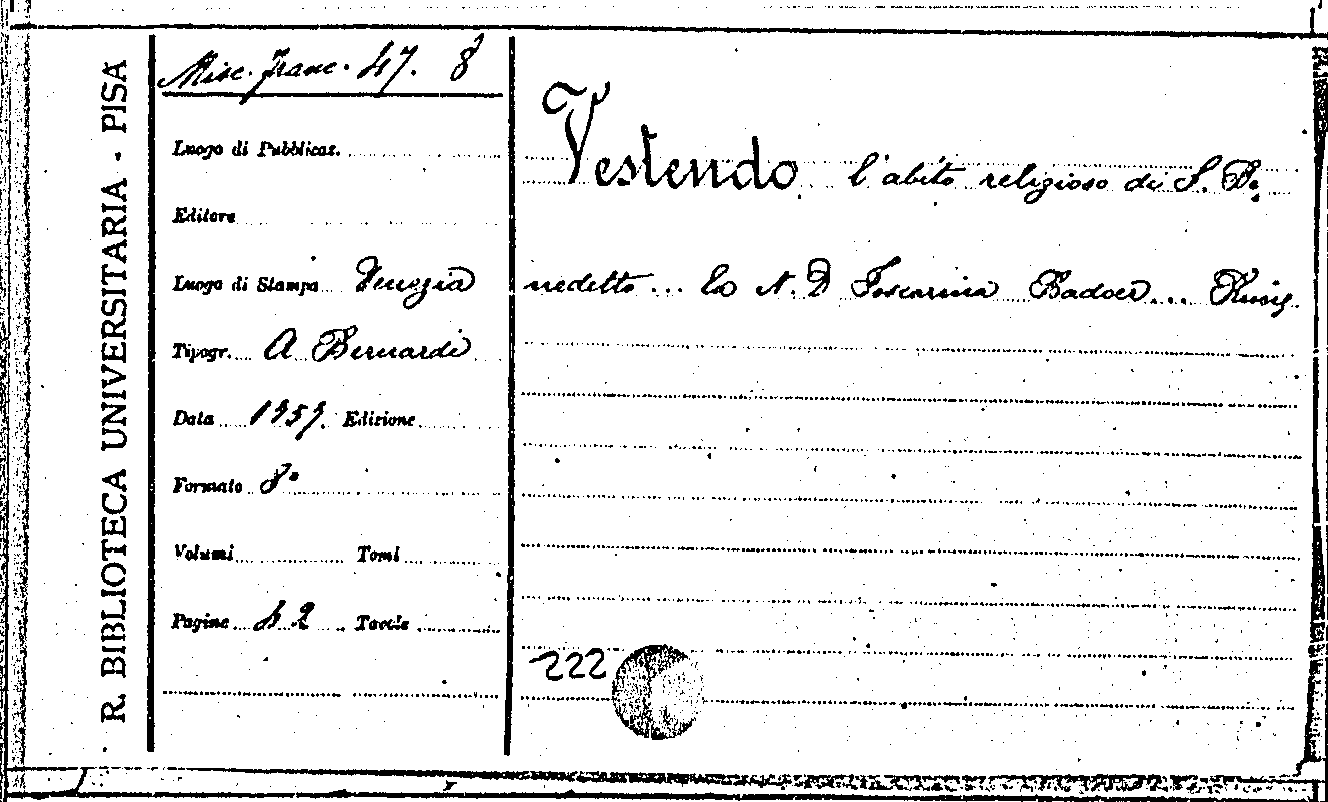 R. BIBLIOTECA UNIVERSITARIA - PISA
Misc. Franc. 47. 8
Luogo di Pubblicaz.
Editore
Luogo di Stampa Venezia
Tipogr. A Bernardi
Data Edizione
Formato 8°
Volumi Tomi
Pagine Tavole
Vestendo l'abito religioso di S. Be,
nedetto... la N. D Foscarina Badoer...
222